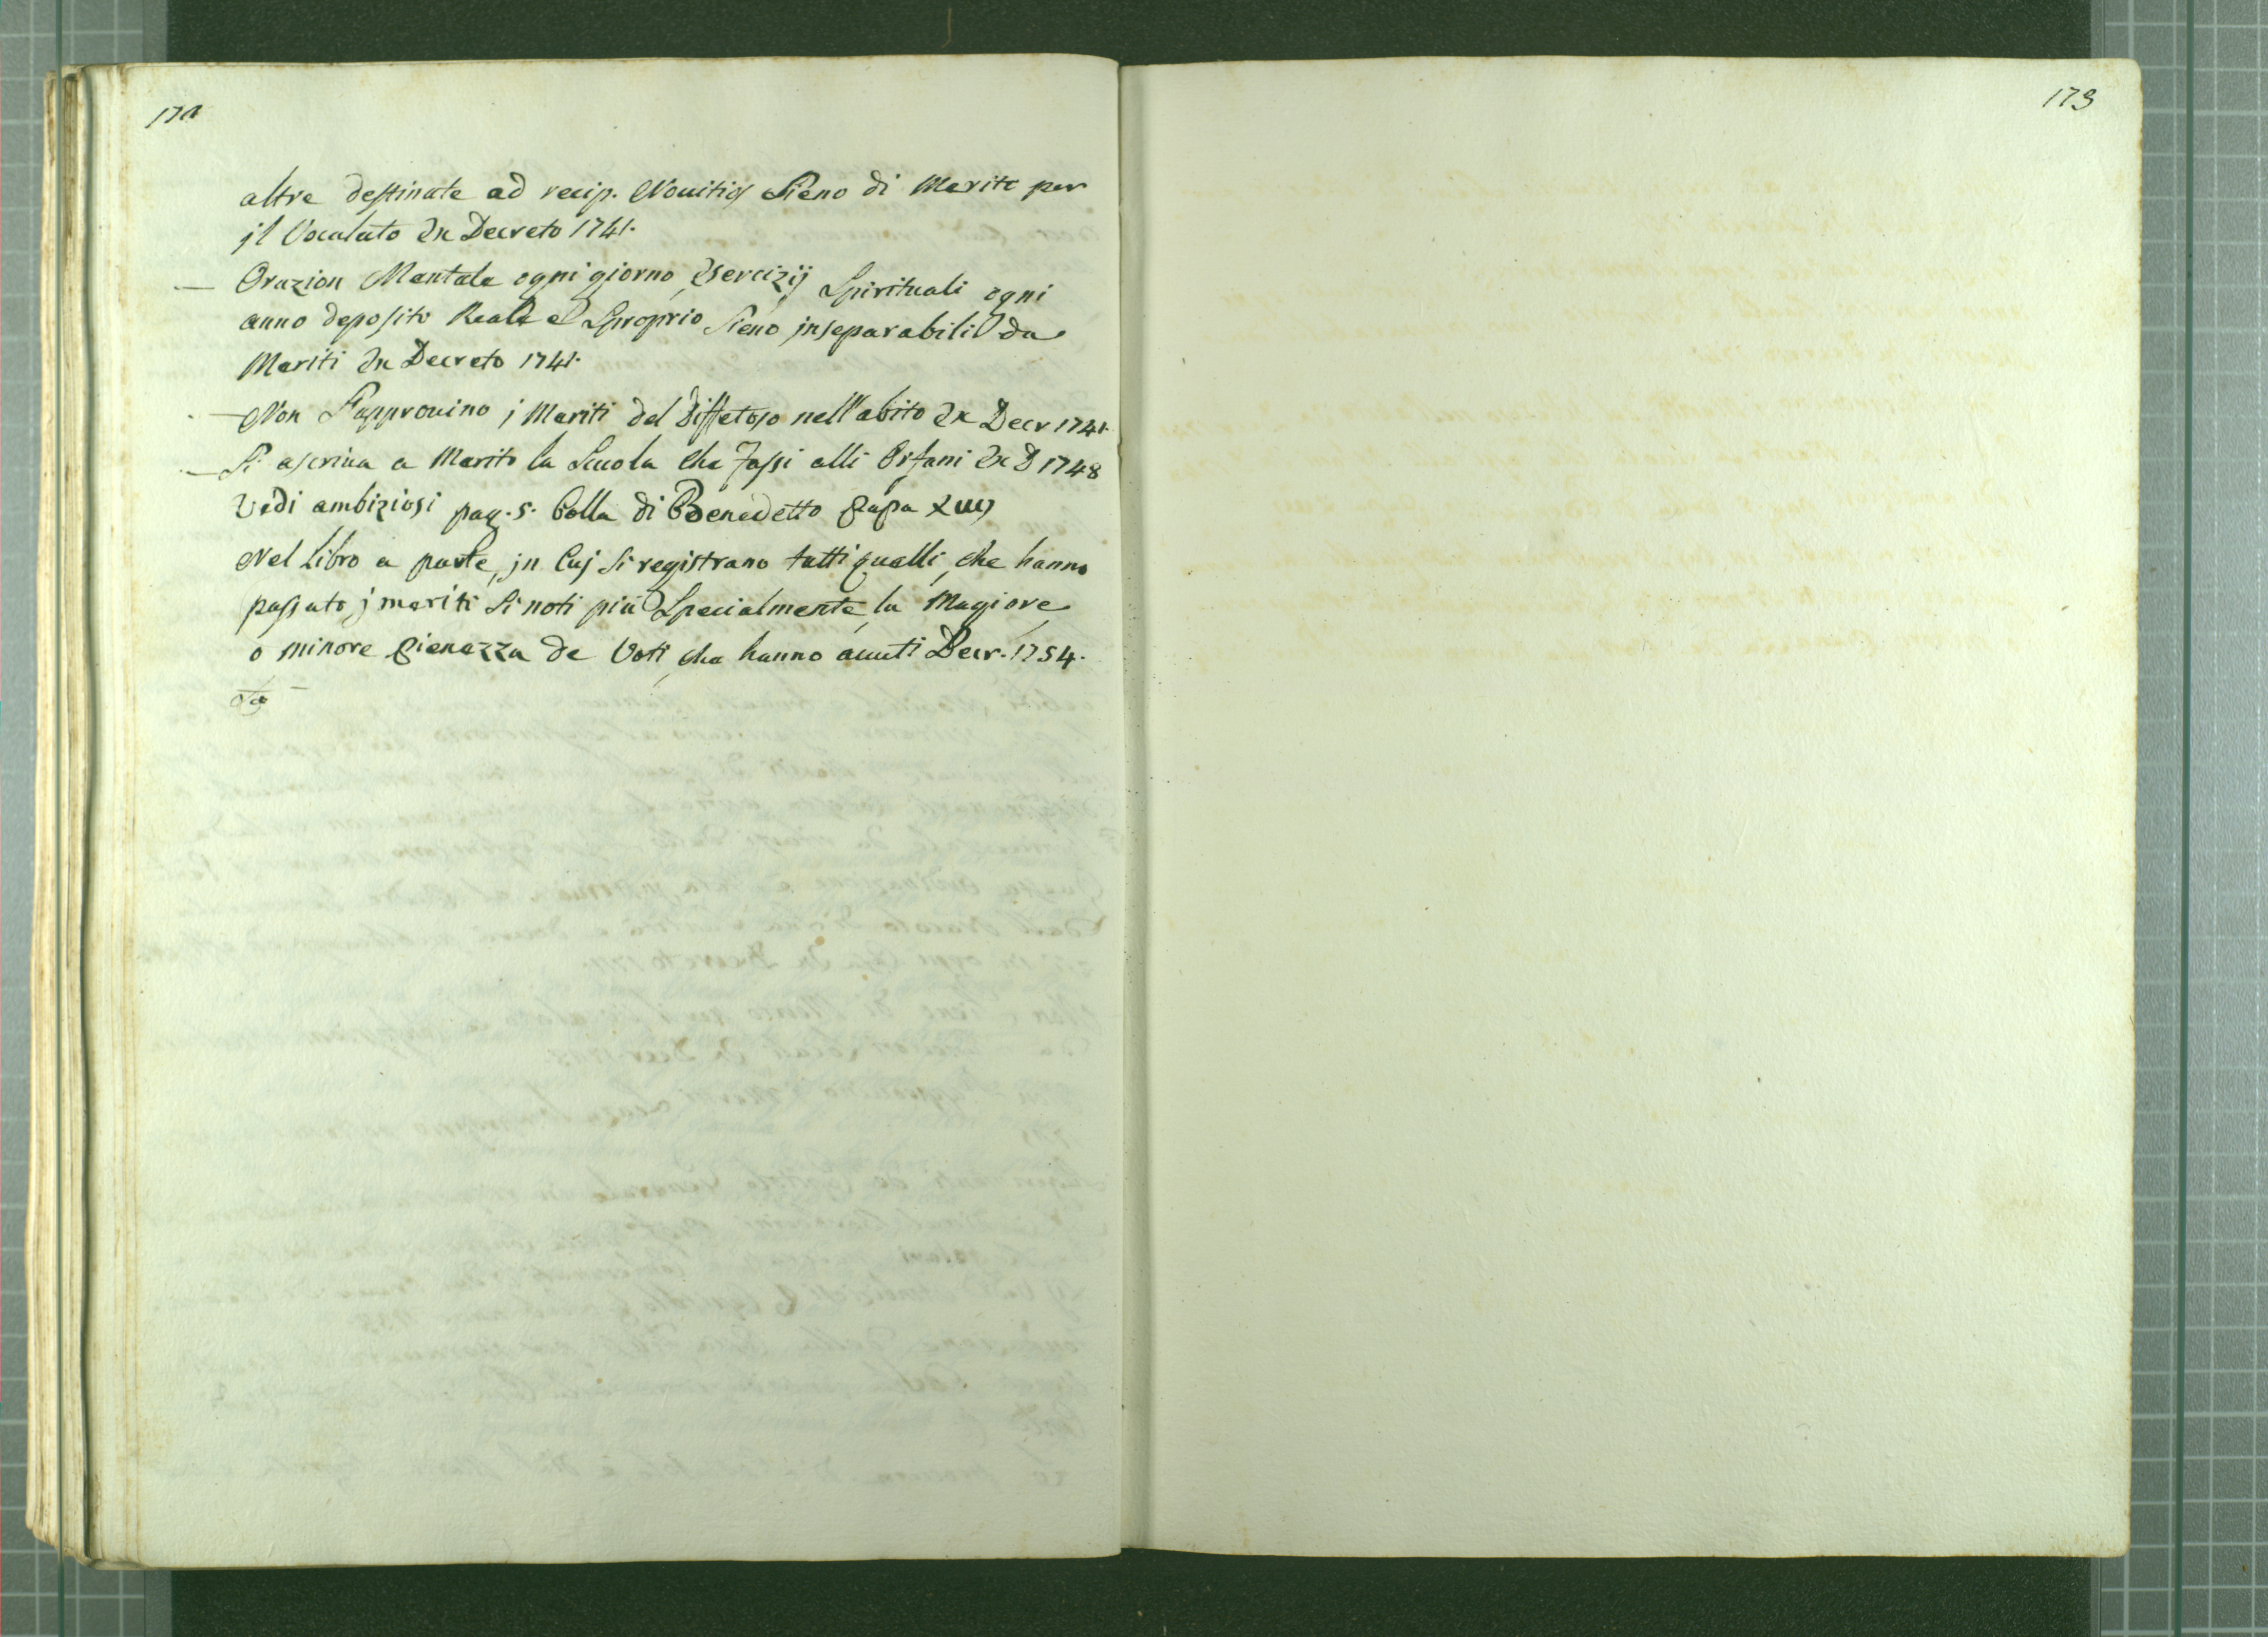 172
173
altre destinate ad recip. Nouitios Sieno di Merito per
jl Vocalato Ex Decreto 1741.
— Orazion Mentale ogni giorno, Esercizij Spirituali ogni
anno deposito Reale e Sproprio Sieno jnseparabili da
Meriti Ex Decreto 1741.
— Non S'approuino j Meriti del Diffetoso nell'abito Ex Decr 1741.
— Si ascriua a Merito la Scuola che fassi alli Orfani Ex D 1748
Vedi ambiziosi pag. 5. Bolla di Benedetto Papa XIIII
Nel Libro a parte, jn Cuj Si registrano tutti quelli, che hanno
passato j meriti Si noti più Specialmente, la Magiore,
o minore pienezza de Voti, che hanno auuti Decr. 1754.